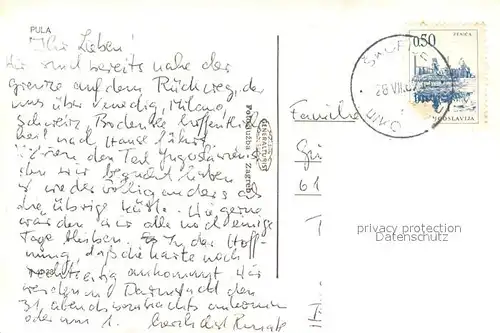 PULA
Ihr Lieben!
Wir sind bereits nahe der
Grenze auf dem Rückweg, der
uns über Venedig, Milano,
Schweiz, Bodensee hoffentlich
heil nach Hause führt.
den Teil Jugoslawiens
den wir begrüßt haben
ist wieder völlig anders als
die übrige Küste. Wie gerne
würden wir alle noch einige
Tage bleiben. In der Hoff-
nung, daß die Karte noch
rechtzeitig ankommt. Wir
werden in Darmstadt den
31. abends/nachts ankommen
oder am 1. herzlichst Renate
GENERALTURIST
Fotoslužba - Zagreb
Familie
Gü
61
T
0.50
ZENICA
JUGOSLAVIJA
28 VII
privacy protection
Datenschutz